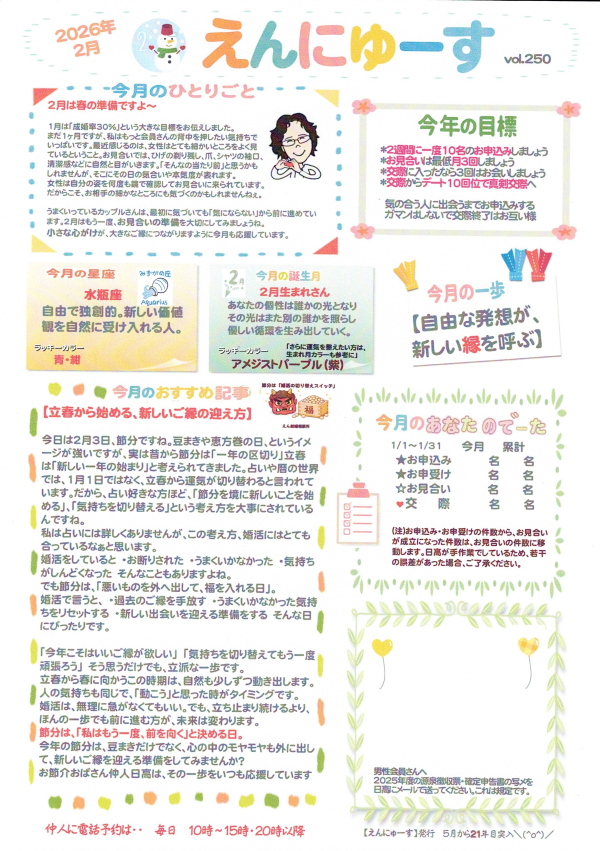 2026年
2月
えんにゅーす
vol.250
今月のひとりごと
2月は春の準備ですよ～
1月は「成婚率30%」という大きな目標をお伝えしました。
まだ1ヶ月ですが、私はもっと会員さんの背中を押したい気持ちで
いっぱいです。最近感じるのは、女性はとても細かいところをよく見
ているということ。お見合いでは、ひげの剃り残し、爪、シャツの袖口、
清潔感などに自然と目がいきます。「そんなの当たり前」と思うかも
しれませんが、そこにその日の気合いや本気度が表れます。
女性は自分の姿を何度も鏡で確認してお見合いに来られています。
だからこそ、お相手の細かなところにも気づくのかもしれませんねぇ。
うまくいっているカップルさんは、最初に気づいても「気にならない」から前に進めてい
ます。2月はもう一度、お見合いの準備を大切にしてみましょう。
小さな心がけが、大きなご縁につながりますように今月も応援しています。
今年の目標
*2週間に一度10名のお申込みしましょう
*お見合いは最低月3回しましょう
*交際に入ったなら3回はお会いしましょう
*交際からデート10回位で真剣交際へ
気の合う人に出会うまでお申込みする
ガマンはしないで交際終了はお互い様
今月の星座
水瓶座
みずがめ座
Aquarius
自由で独創的。新しい価値
観を自然に受け入れる人。
ラッキーカラー
青・紺
2月
今月の誕生月
2月生まれさん
あなたの個性は誰かの光となり
その光はまた別の誰かを照らし
優しい循環を生み出していく。
「さらに運気を整えたい方は、
生まれ月カラーも参考に」
ラッキーカラー
アメジストパープル(紫)
今月の一歩
【自由な発想が、
新しい縁を呼ぶ】
今月のおすすめ記事
節分は「婚活の切り替えスイッチ」
福
えん結婚相談所
【立春から始める、新しいご縁の迎え方】
今日は2月3日、節分ですね。豆まきや恵方巻の日、というイメ
ージが強いですが、実は昔から節分は「一年の区切り」立春
は「新しい一年の始まり」と考えられてきました。占いや暦の世界
では、1月1日ではなく、立春から運気が切り替わると言われて
います。だから、占い好きな方ほど、「節分を境に新しいことを始
める」、「気持ちを切り替える」という考え方を大事にされている
んですね。
私は占いには詳しくありませんが、この考え方、婚活にはとても
合っているなぁと思います。
婚活をしていると ・お断りされた ・うまくいかなかった ・気持ち
がしんどくなった そんなこともありますよね。
でも節分は、「悪いものを外へ出して、福を入れる日」。
婚活で言うと、・過去のご縁を手放す ・うまくいかなかった気持
ちをリセットする ・新しい出会いを迎える準備をする そんな日
にぴったりです。
「今年こそはいいご縁が欲しい」 「気持ちを切り替えてもう一度
頑張ろう」 そう思うだけでも、立派な一歩です。
立春から春に向かうこの時期は、自然も少しずつ動き出します。
人の気持ちも同じで、「動こう」と思った時がタイミングです。
婚活は、無理に急がなくてもいい。でも、立ち止まり続けるより、
ほんの一歩でも前に進む方が、未来は変わります。
節分は、「私はもう一度、前を向く」と決める日。
今年の節分は、豆まきだけでなく、心の中のモヤモヤも外に出し
て、新しいご縁を迎える準備をしてみませんか？
お節介おばさん仲人日高は、その一歩をいつも応援しています
今月のあなたのでーた
1/1～1/31 今月 累計
★お申込み 名 名
★お申受け 名 名
☆お見合い 名 名
♥交 際 名 名
(注)お申込み・お申受けの件数から、お見合い
が成立になった件数は、お見合いの件数に移
動します。日高が手作業でしているため、若干
の誤差があった場合、ご了承ください。
男性会員さんへ
2025年度の源泉徴収票・確定申告書の写メを
日高にメールで送ってください。これは規定です。
仲人に電話予約は・・ 毎日 10時～15時・20時以降
【えんにゅーす】発行 5月から21年目突入＼(^o^)／